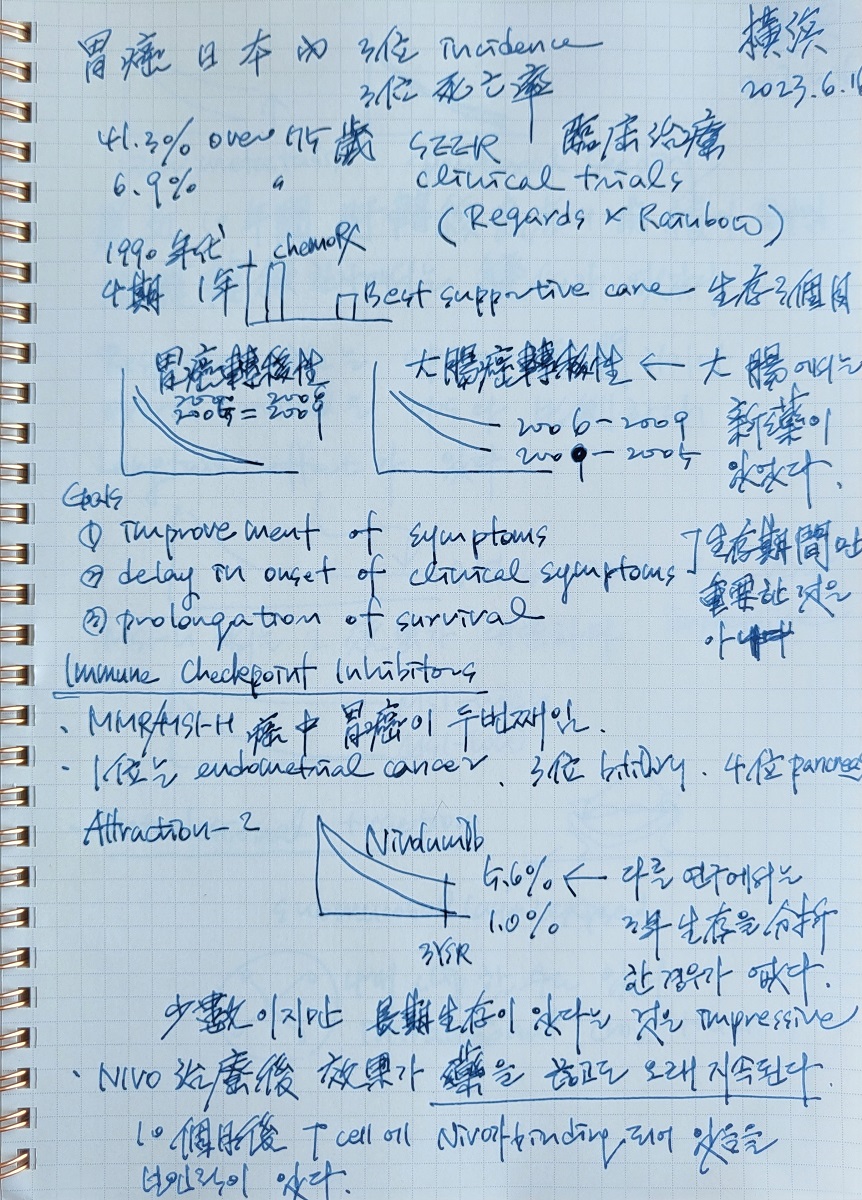 胃癌 日本 内 3位 incidence
3位 死亡率
橫浜
2023.6.16
41.3% over 75歲 SEER 臨床治療
6.9% 〃 clinical trials
(Regards × Rainbow)
1990年代 chemoRx
4期 1年 Best supportive care 生存 3個月
胃癌轉移性 大腸癌轉移性 ← 大腸에서는
2005 = 2009 2006-2009 新藥이
2005 있었다.
Goals
① improvement of symptoms
② delay in onset of clinical symptoms ] 生存期間만
③ prolongation of survival 重要한 것은
아
Immune Checkpoint Inhibitors
· MMR/MSI-H 癌中 胃癌이 두번째임.
· 1位는 endometrial cancer. 3位 biliary. 4位 pancreas
Attraction-2 Nivolumab
5.6% ← 다른 연구에서는
1.0% 3年 生存을 分析
3YSR 한 경우가 없다.
少數이지만 長期生存이 있다는 것은 impressive
· NIVO 治療後 效果가 藥을 끊고도 오래 지속된다.
10個月後 T cell에 Nivo가 binding 되어 있음을
있다.